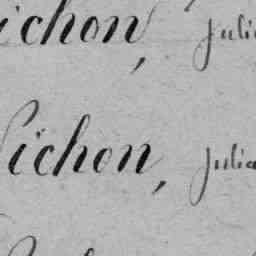 ichon, Julia
ichon, Julia